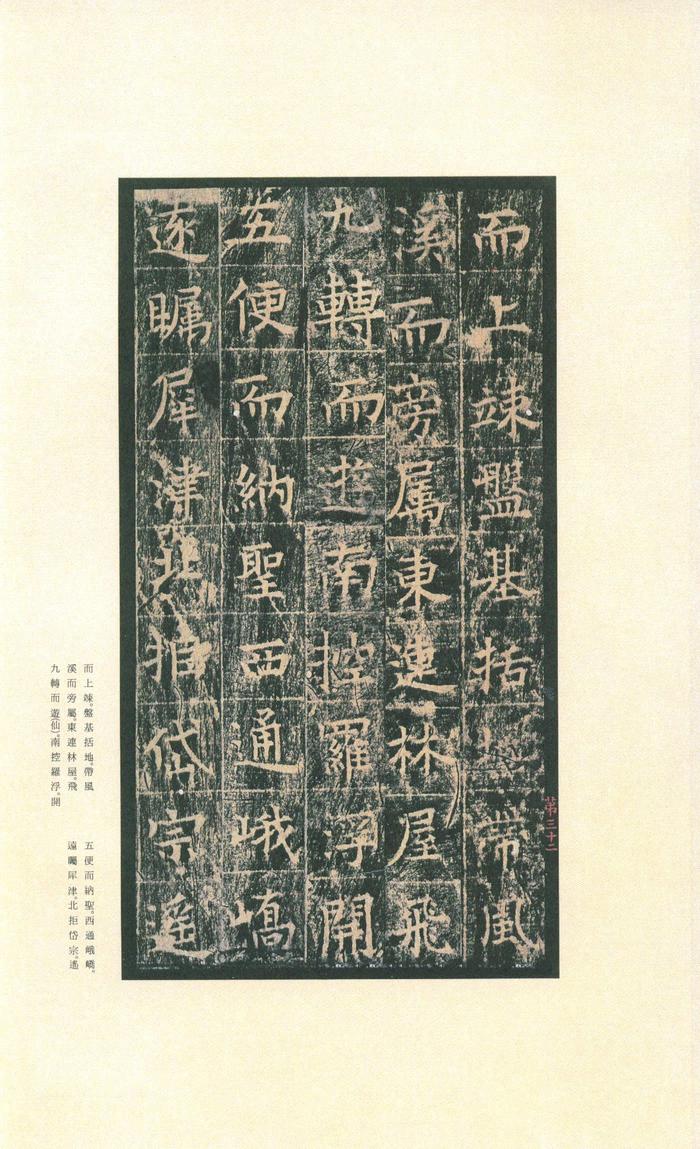 而上竦盤基括地帶風
溪而旁属東連林屋飛
九轉而遊南控羅浮開
五便而納聖西通峨嶠
遠矚犀津北拒岱宗遥
第三十二
而上竦。盤基括地。帶風
溪而旁屬。東連林屋。飛
九轉而遊(仙)。南控羅浮。開
五便而納聖。西通峨嶠。
遠矚犀津。北拒岱宗。遙